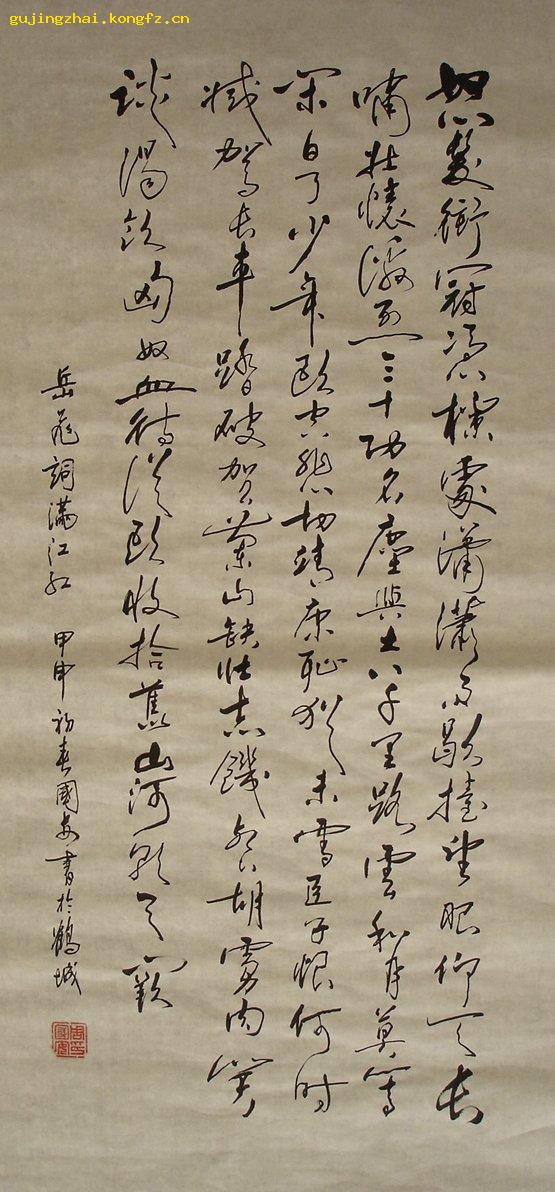 gujingzhai.kongfz.cn
怒髮衝冠憑欄處瀟瀟雨歇擡望眼仰天長
嘯壯懷激烈三十功名塵與土八千里路雲和月莫等
閑白了少年頭空悲切靖康恥猶未雪臣子恨何時
滅駕長車踏破賀蘭山缺壯志饑餐胡虜肉笑
談渴飲匈奴血待從頭收拾舊山河朝天闕
岳飛詞滿江紅 甲申初春國安書於鶴城